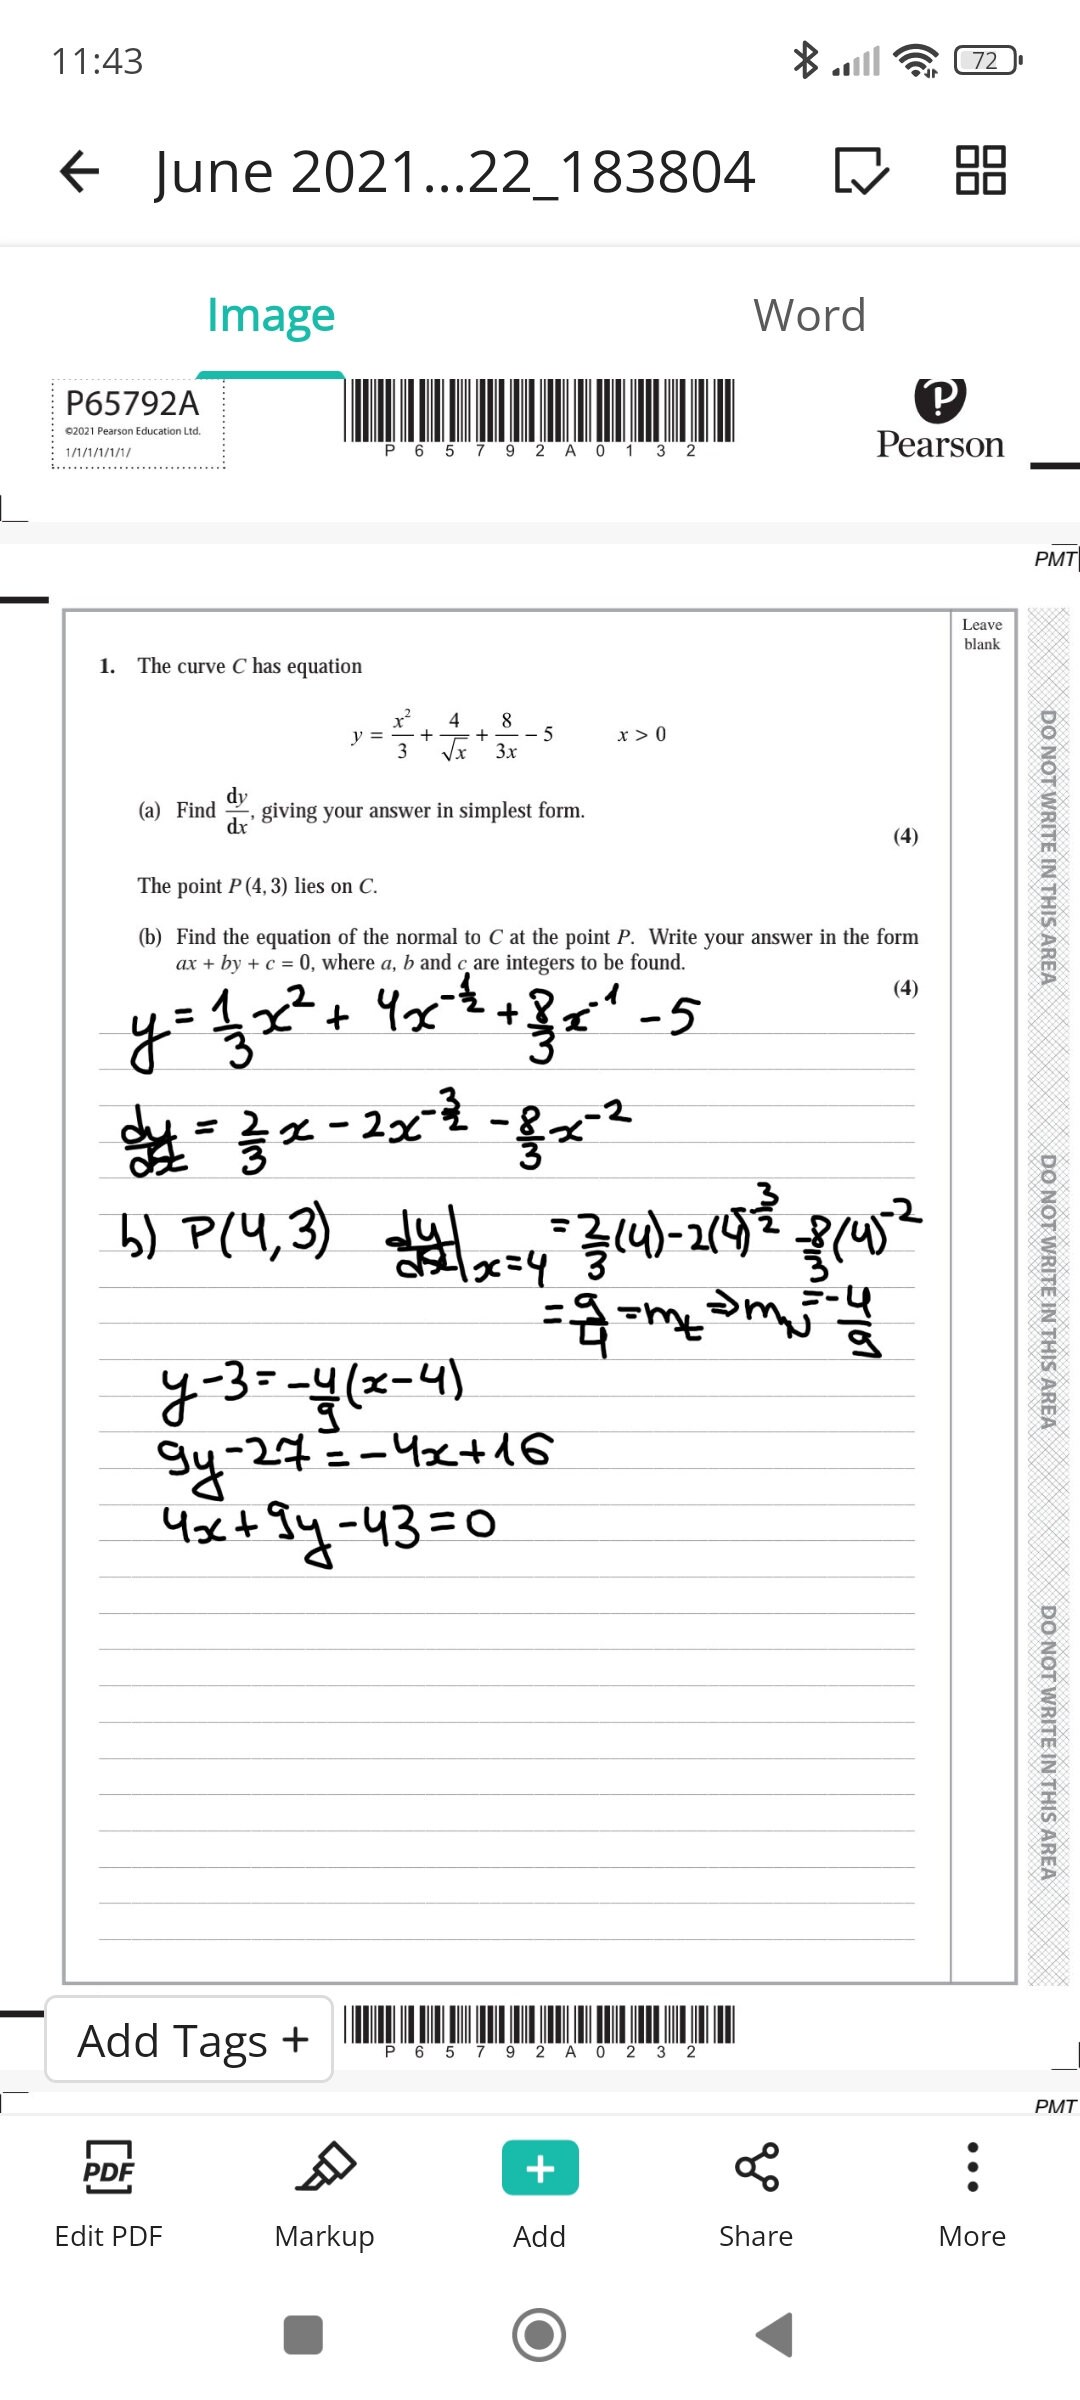 11:43
72
June 2021...22_183804
Image
Word
P65792A
©2021 Pearson Education Ltd.
1/1/1/1/1/1/
P 6 5 7 9 2 A 0 1 3 2
Pearson
PMT
Leave
blank
1. The curve C has equation
y = x²/3 + 4/√x + 8/3x − 5 x > 0
(a) Find dy/dx, giving your answer in simplest form.
(4)
The point P(4, 3) lies on C.
(b) Find the equation of the normal to C at the point P. Write your answer in the form
ax + by + c = 0, where a, b and c are integers to be found.
(4)
y = 1/3 x² + 4x^(-1/2) + 8/3 x^(-1) - 5
dy/dx = 2/3 x - 2x^(-3/2) - 8/3 x^(-2)
b) P(4,3) dy/dx|x=4 = 2/3(4) - 2(4)^(-3/2) - 8/3(4)^(-2)
= 9/4 = mt ⇒ mN = -4/9
y-3 = -4/9(x-4)
9y-27 = -4x+16
4x+9y-43=0
DO NOT WRITE IN THIS AREA
DO NOT WRITE IN THIS AREA
DO NOT WRITE IN THIS AREA
Add Tags +
P 6 5 7 9 2 A 0 2 3 2
PMT
PDF
Edit PDF
Markup
Add
Share
More